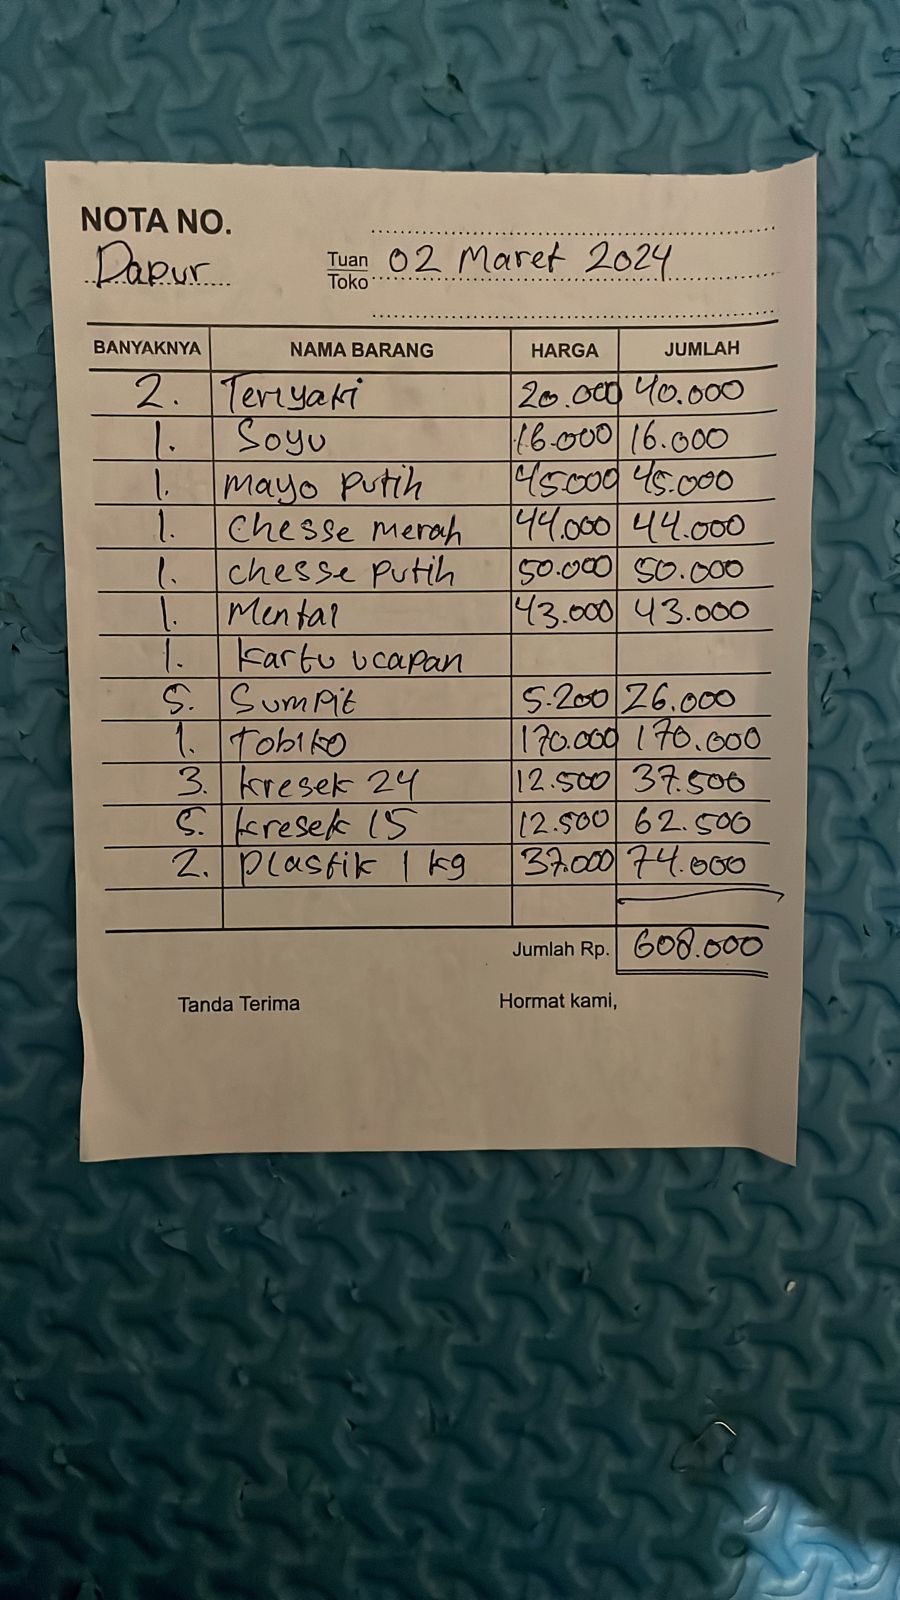 NOTA NO.
Dapur
Tuan
Toko
02 Maret 2024
BANYAKNYA NAMA BARANG HARGA JUMLAH
2. Teriyaki 20.000 40.000
1. Soyu 16.000 16.000
1. mayo putih 45.000 45.000
1. Chesse merah 44.000 44.000
1. chesse putih 50.000 50.000
1. Mentai 43.000 43.000
1. kartu ucapan
5. Sumpit 5.200 26.000
1. Tobiko 170.000 170.000
3. kresek 24 12.500 37.500
5. kresek 15 12.500 62.500
2. Plastik 1 kg 37.000 74.000
Jumlah Rp. 608.000
Tanda Terima Hormat kami,